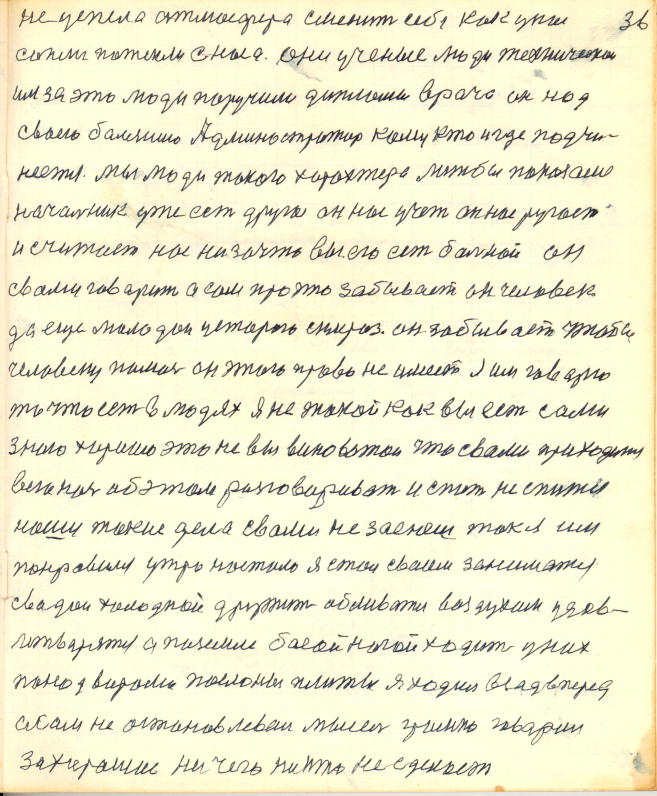 не успела атмосфера сменит себя как уние 36
сопли потекли с носа. они ученые люди технически
им за это люди поручили дипломы врача он над
своего болзнию Администратор кому кто и где подчи-
неется. мы люди такого характера литбы показание
началник уже ест другие он нас учет он нас ругает
и считает нас низачто вы его ест балной он
свами говарит а сам про это забывает он человек
да еще молодой у которого силраз. он забывает чтобы
человеку помоч он этого право не имеет я им говарю
то что ест в людях я не такой как вы ест сами
знаю хорошо это не вы виноватои что свами приходится
всю ноч об этом разговариват и спат не спится
наши такие дела свами не заснеш так я им
понравился утро настало я стал своем заниматся
свадой холодной дружит обливатся воздухом удов-
летварятся а поземле босой ногой ходит у них
поподворами послоны плиты я ходил взад вперед
а сам не остановлевал мысел громко гаварил
захорошие ничего никто не сделает